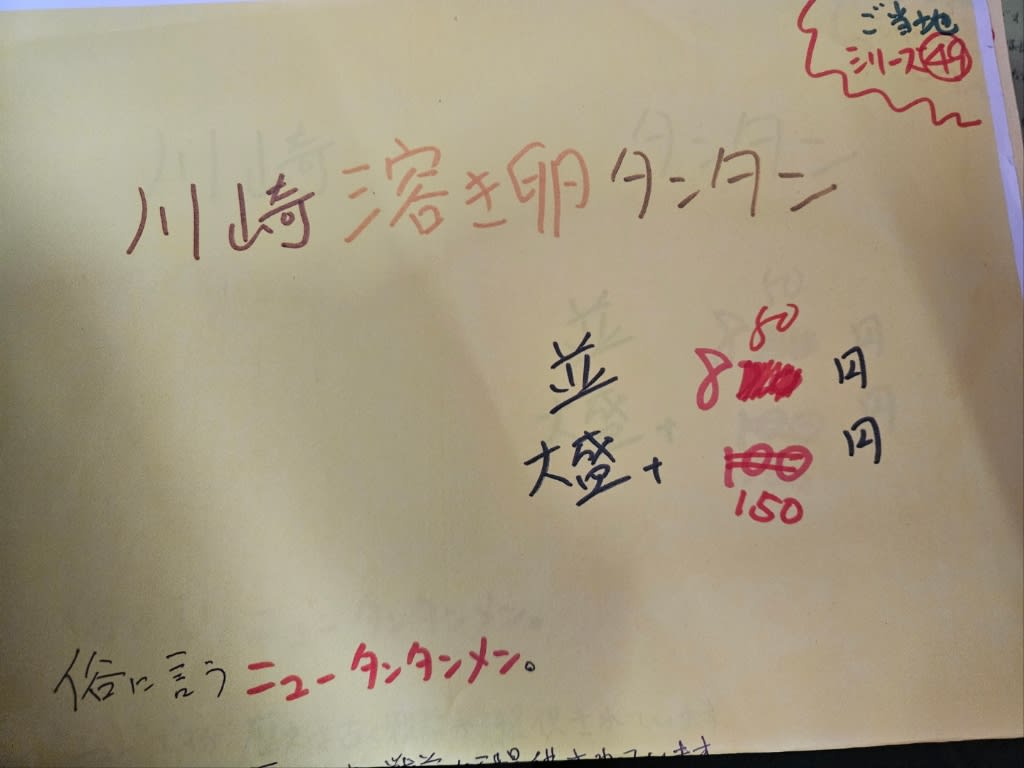 ご当地
シリーズ㊾
川崎溶き卵タンタン
80
並 8 円
大盛+ 100 円
150
俗に言うニュータンタンメン。